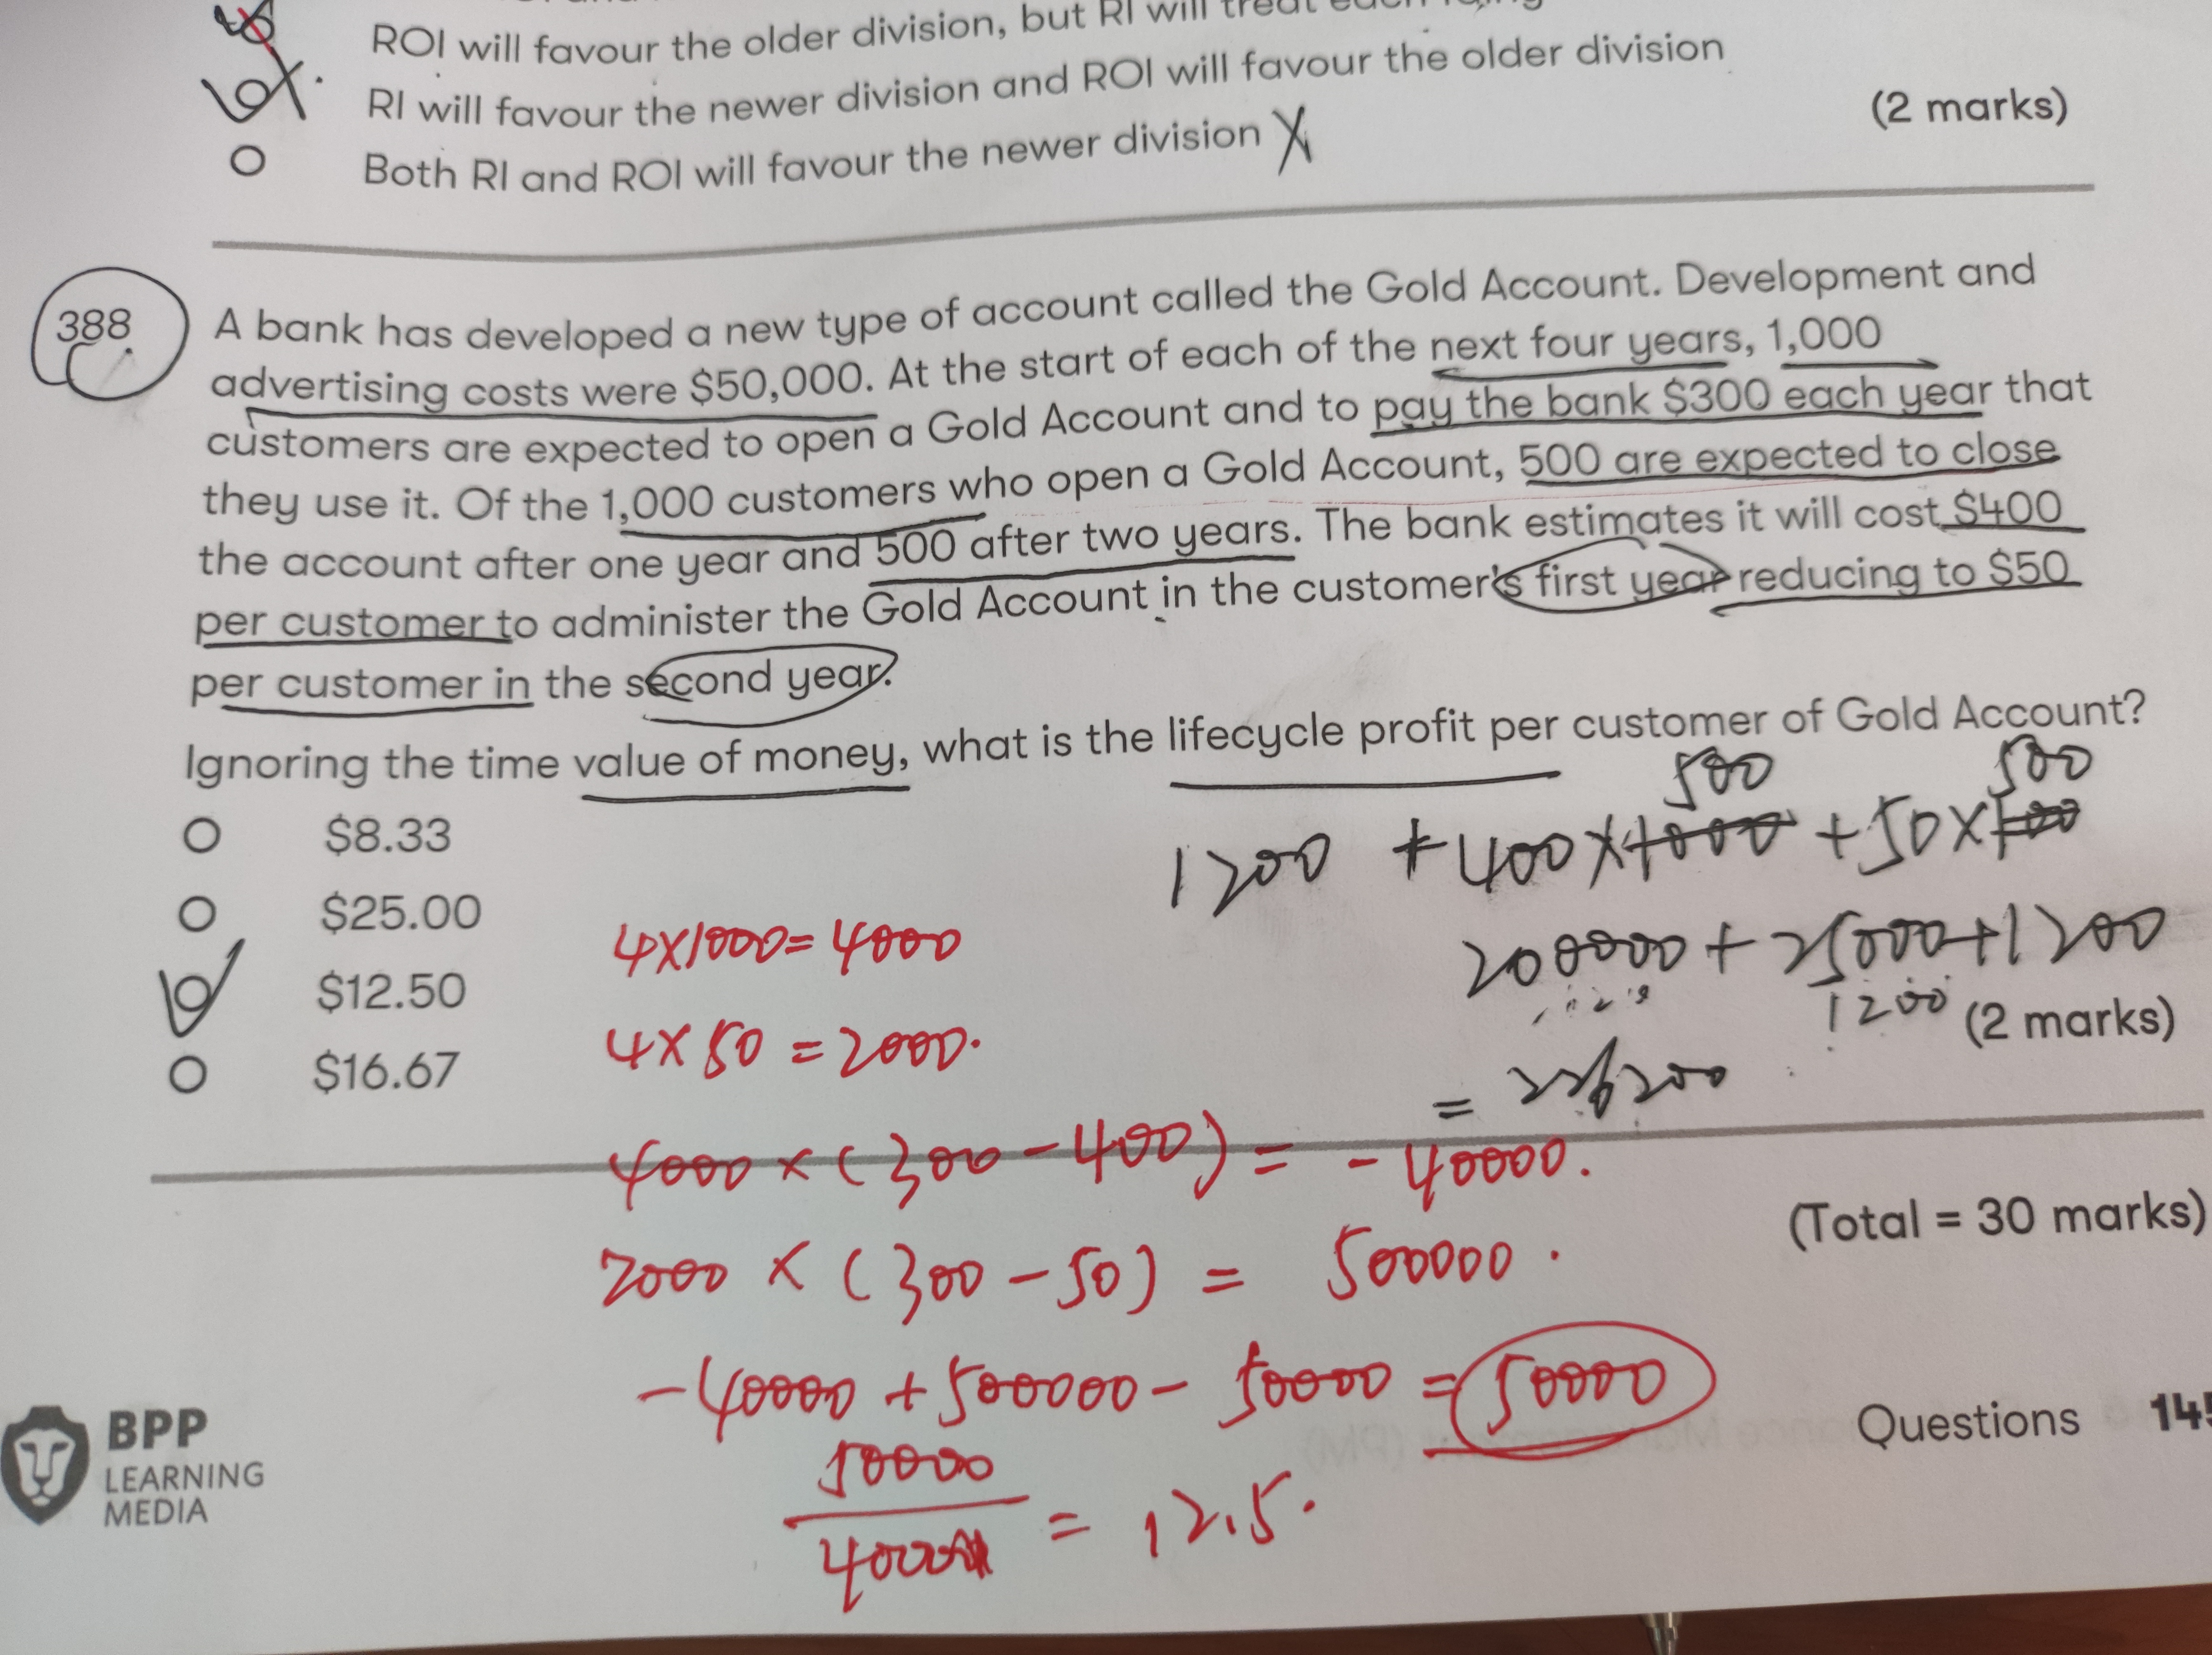 ROI will favour the older division, but RI will treat each
RI will favour the newer division and ROI will favour the older division
Both RI and ROI will favour the newer division X
(2 marks)
388
A bank has developed a new type of account called the Gold Account. Development and
advertising costs were $50,000. At the start of each of the next four years, 1,000
customers are expected to open a Gold Account and to pay the bank $300 each year that
they use it. Of the 1,000 customers who open a Gold Account, 500 are expected to close
the account after one year and 500 after two years. The bank estimates it will cost $400
per customer to administer the Gold Account in the customer's first year reducing to $50
per customer in the second year.
Ignoring the time value of money, what is the lifecycle profit per customer of Gold Account?
500 500
1200 + 400 × 1000 + 50 ×
$8.33
$25.00
$12.50
$16.67
200000 + 25000 + 1200
1200
(2 marks)
= 226200
4×1000=4000
4×50=2000.
4000 × (300 - 400) = -40000.
2000 × (300 - 50) = 500000.
-40000 + 500000 - 50000 = 50000
50000
= 12.5.
(Total = 30 marks)
BPP
LEARNING
MEDIA
Questions